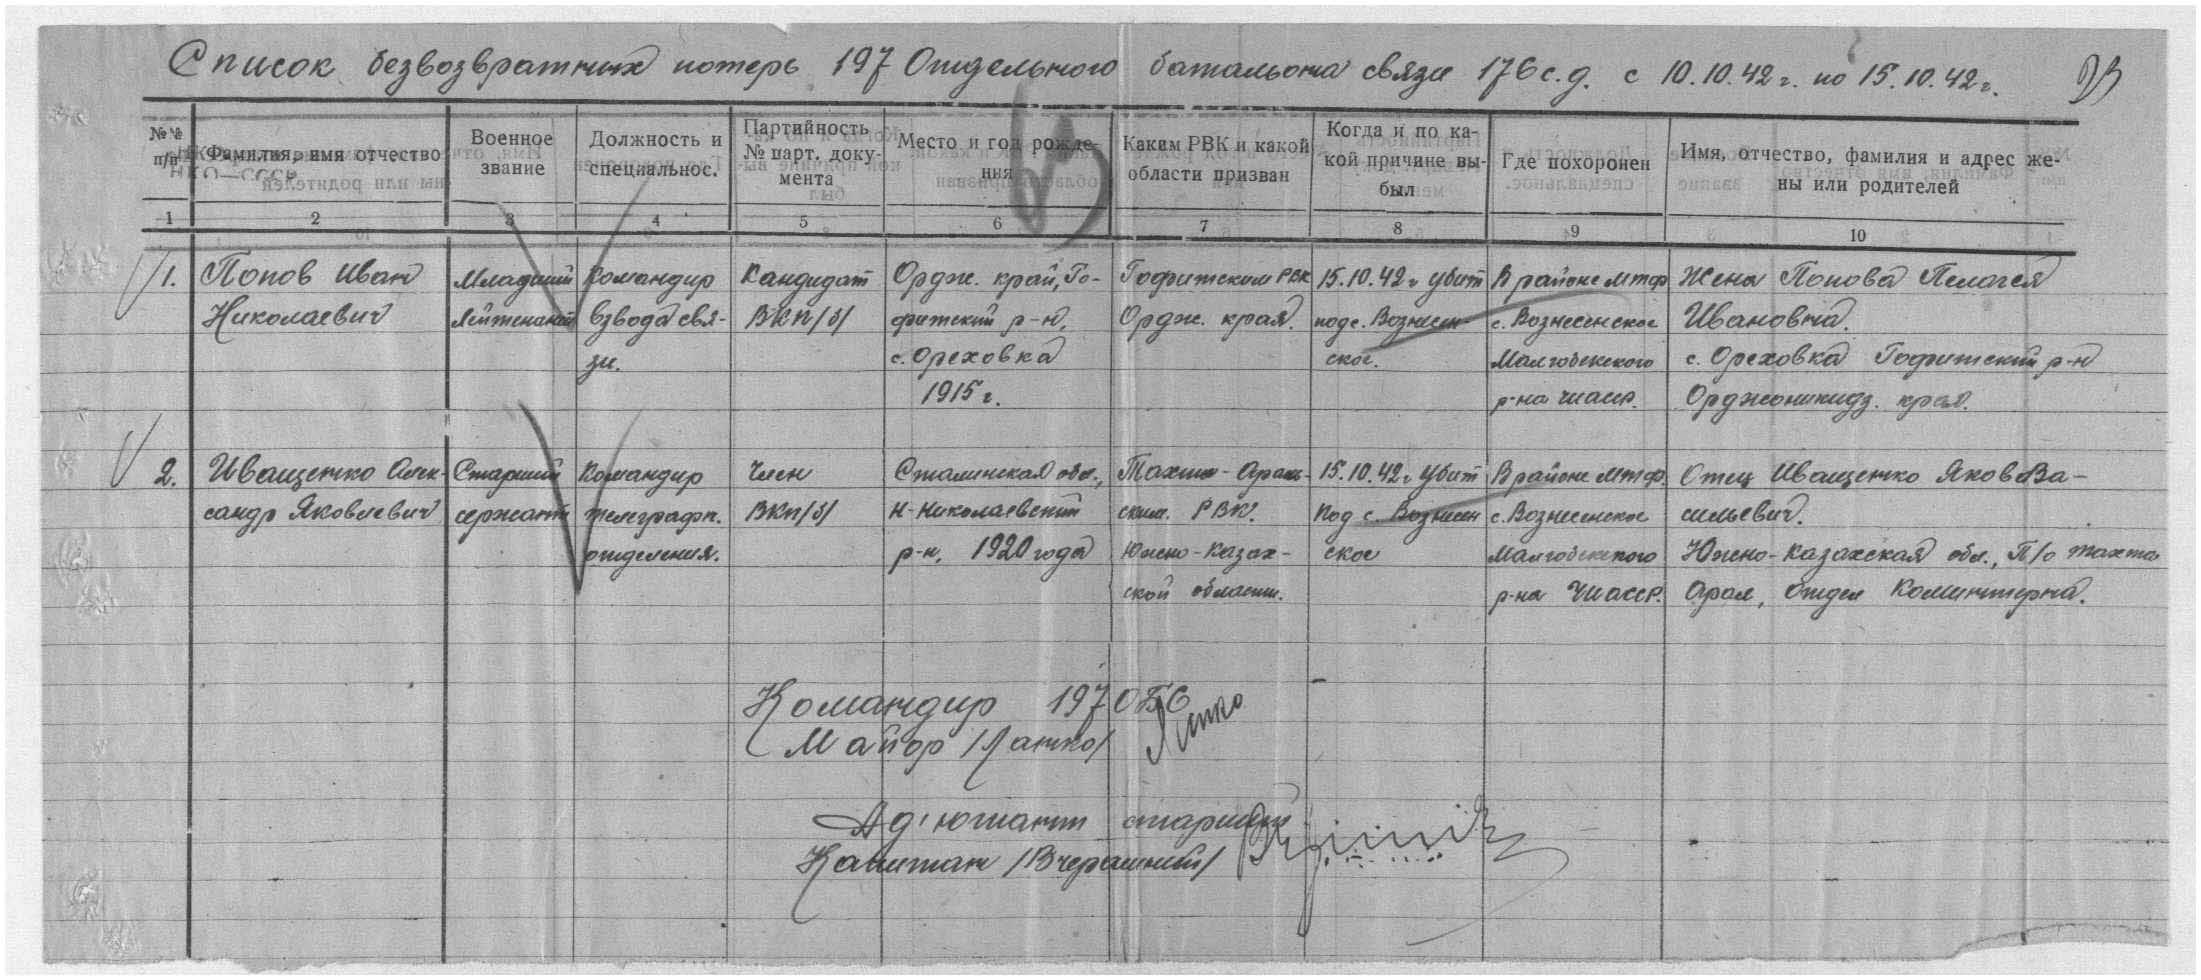 Список безвозвратных потерь 197 Отдельного батальона связи 176 с.д. с 10.10.42 г. по 15.10.42 г.
№№ п/п
Фамилия, имя отчество
Военное звание
Должность и специальнос.
Партийность № парт. документа
Место и год рождения
Каким РВК и какой области призван
Когда и по какой причине выбыл
Где похоронен
Имя, отчество, фамилия и адрес жены или родителей
1 2 3 4 5 6 7 8 9 10
1. Попов Иван Младший Командир Кандидат Ордж. край, Го- Гофитским РВК 15.10.42 г убит В районе МТФ Жена Попова Пелагея
Николаевич лейтенант взвода свя- ВКП/б/ фитский р-н, Ордж. края. под с. Вознесен- с. Вознесенское Ивановна.
зи. с. Ореховка ское. Малгобекского с. Ореховка Гофитский р-н
1915 г. р-на ЧИАССР. Орджоникидз. края.
2. Иващенко Алек- Старший Командир Член Сталинская обл., Тахта-Араль- 15.10.42 г убит В районе МТФ. Отец Иващенко Яков Ва-
сандр Яковлевич сержант телеграфн. ВКП/б/ Н-Николаевский ским. РВК. Под с. Вознесен с. Вознесенское сильевич.
отделения. р-н, 1920 года Южно-Казах- ское Малгобекского Южно-Казахская обл., П/о Тахта
ской области. р-на ЧИАССР. Арал, отдел Коминтерна.
Командир 197 ОБС
Майор /Лапко/
Ад'ютант старший
Капитан /Вчерашний/